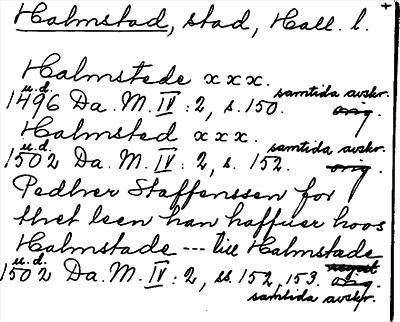 Halmstad, stad, Hall. l. +
Halmstede x x x.
u.d. samtida avskr.
1496 Da. M. IV : 2, s. 150. orig.
Halmsted x x x.
u.d. samtida avskr.
1502 Da. M. IV : 2, s. 152. orig.
Pedher Staffenssen for
thet leen han haffuer hoos
Halmstade --- till Halmstade
u.d.
1502 Da. M. IV : 2, ss. 152, 153. orig.
samtida avskr.